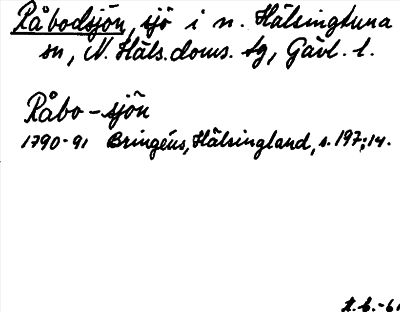 Råbodsjön, sjö i n. Hälsingtuna
sn, N. Häls. doms. tg, Gävl. l.
Råbo-sjön
1790-91 Bringéus, Hälsingland, s. 197; 14.